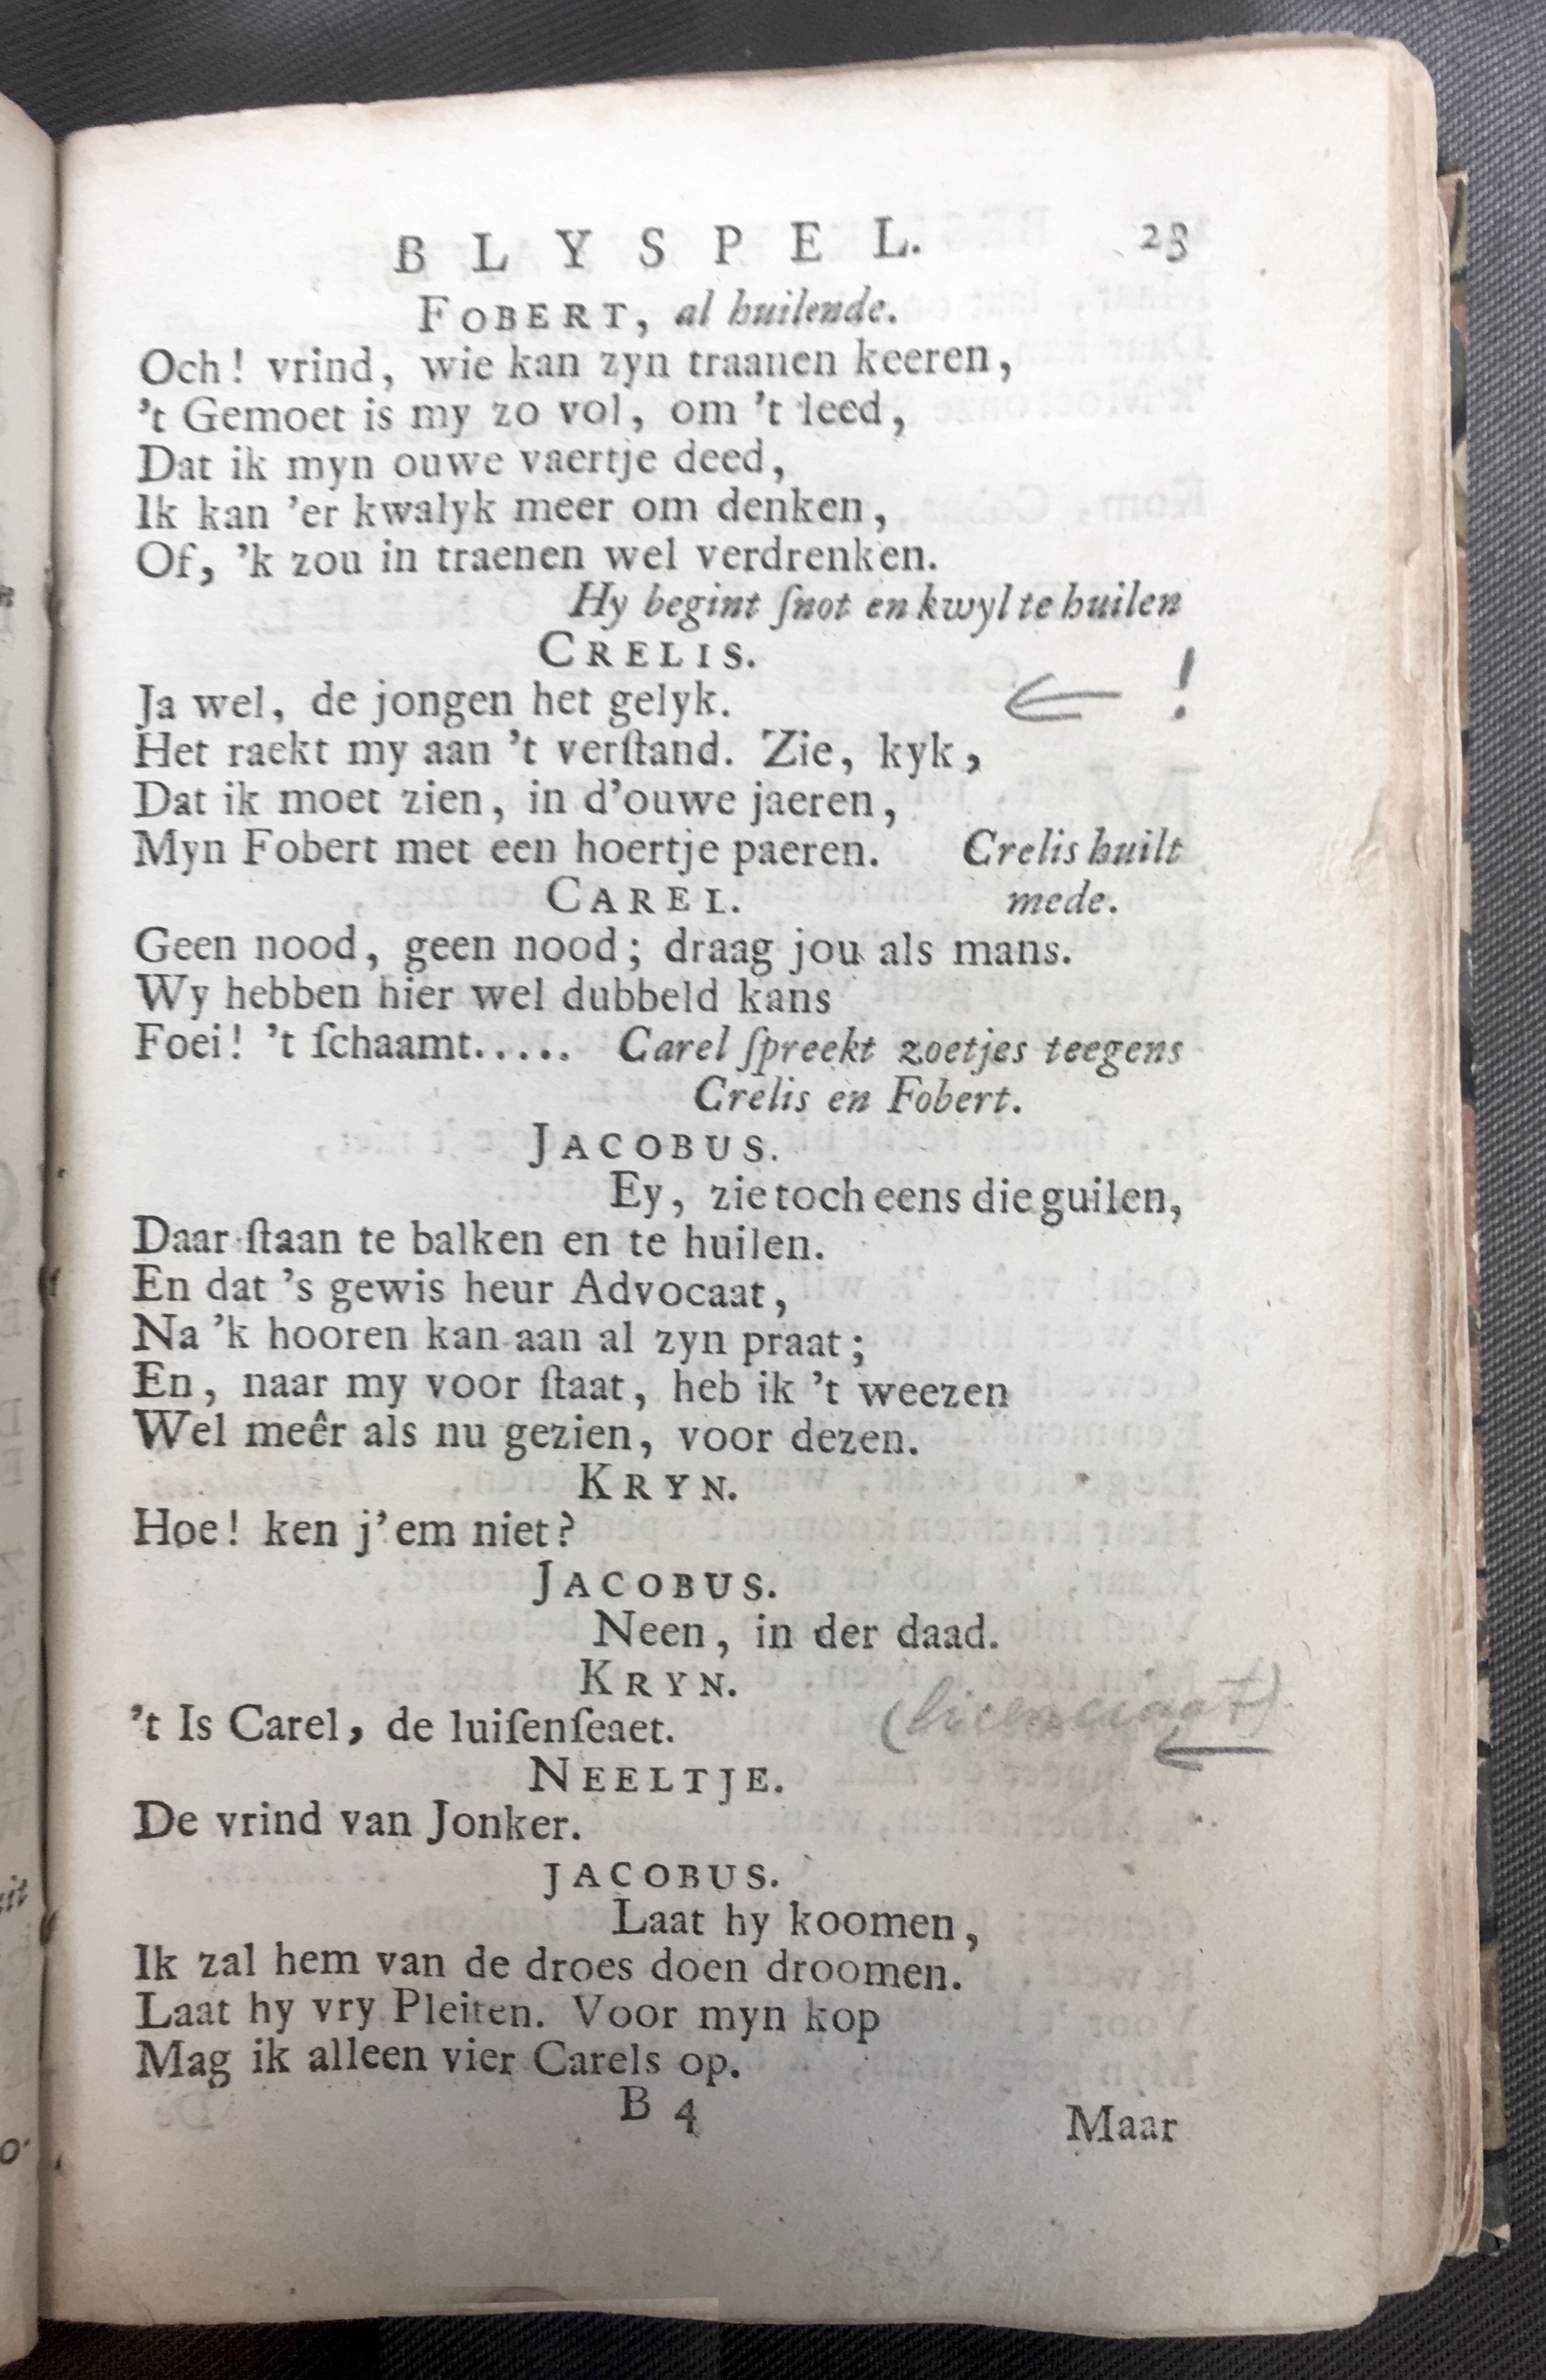 BLYSPEL. 23
FOBERT, al huilende.
Och! vrind, wie kan zyn traanen keeren,
't Gemoet is my zo vol, om 't leed,
Dat ik myn ouwe vaertje deed,
Ik kan 'er kwalyk meer om denken,
Of, 'k zou in traenen wel verdrenken.
Hy begint ſnot en kwyl te huilen
CRELIS.
Ja wel, de jongen het gelyk. ← !
Het raekt my aan 't verſtand. Zie, kyk,
Dat ik moet zien, in d'ouwe jaeren,
Myn Fobert met een hoertje paeren. Crelis huilt
CAREL. mede.
Geen nood, geen nood; draag jou als mans.
Wy hebben hier wel dubbeld kans
Foei! 't ſchaamt..... Carel ſpreekt zoetjes teegens
Crelis en Fobert.
JACOBUS.
Ey, zie toch eens die guilen,
Daar ſtaan te balken en te huilen.
En dat 's gewis heur Advocaat,
Na 'k hooren kan aan al zyn praat;
En, naar my voor ſtaat, heb ik 't weezen
Wel meêr als nu gezien, voor dezen.
KRYN.
Hoe! ken j'em niet?
JACOBUS.
Neen, in der daad.
KRYN.
't Is Carel, de luiſenſeaet. (licenciaat) ←
NEELTJE.
De vrind van Jonker.
JACOBUS.
Laat hy koomen,
Ik zal hem van de droes doen droomen.
Laat hy vry Pleiten. Voor myn kop
Mag ik alleen vier Carels op.
B 4 Maar